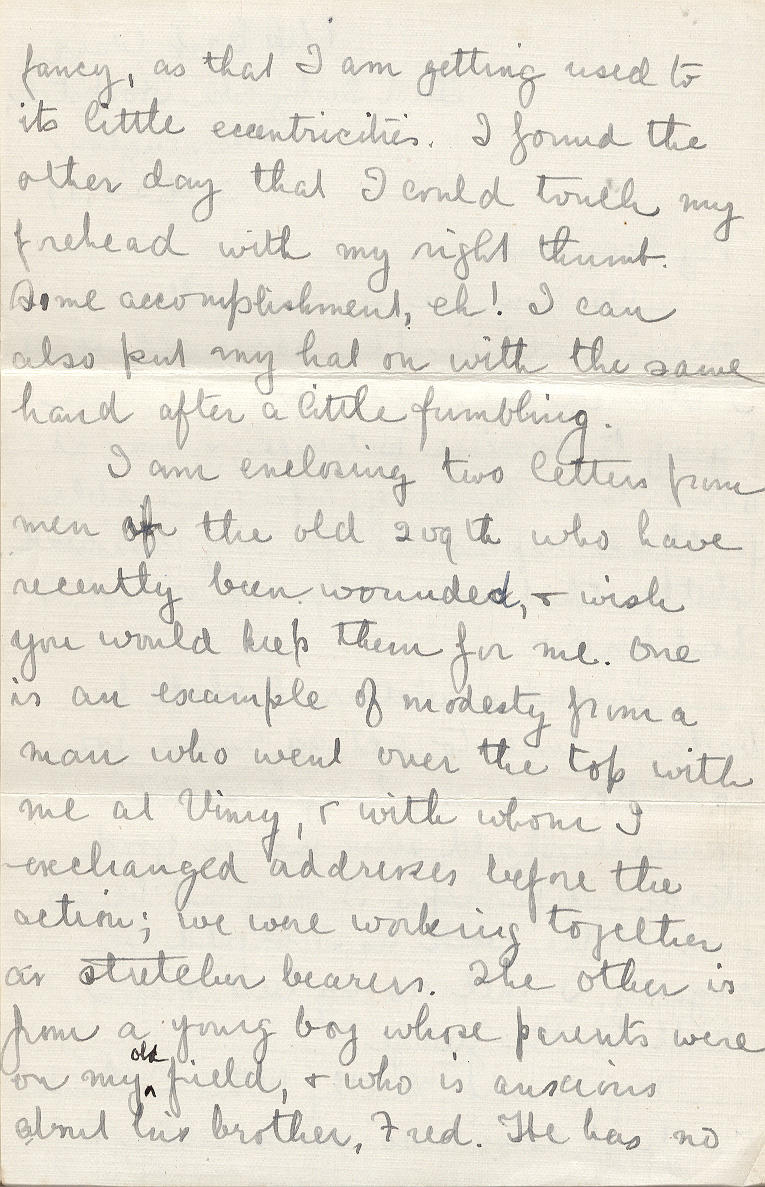 fancy, as that I am getting used to
its little eccentricities. I found the
other day that I could touch my
forehead with my right thumb.
Some accomplishment, eh! I can
also put my hat on with the same
hand after a little fumbling.
I am enclosing two letters from
men of the old 209th who have
recently been wounded, & wish
you would keep them for me. One
is an example of modesty from a
man who went over the top with
me at Vimy, & with whom I
exchanged addresses before the
action; we were working together
as stretcher bearers. The other is
from a young boy whose parents were
on my old field, & who is anxious
about his brother, Fred. He has no